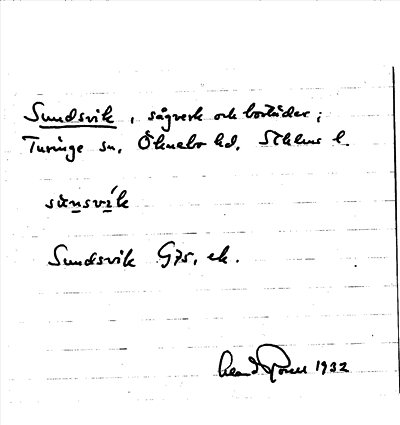 Sundsvik, sågverk och bostäder;
Turinge sn, Öknebo hd, Sthlms l.
sunsvík
Sundsvik G75, ek.
1932